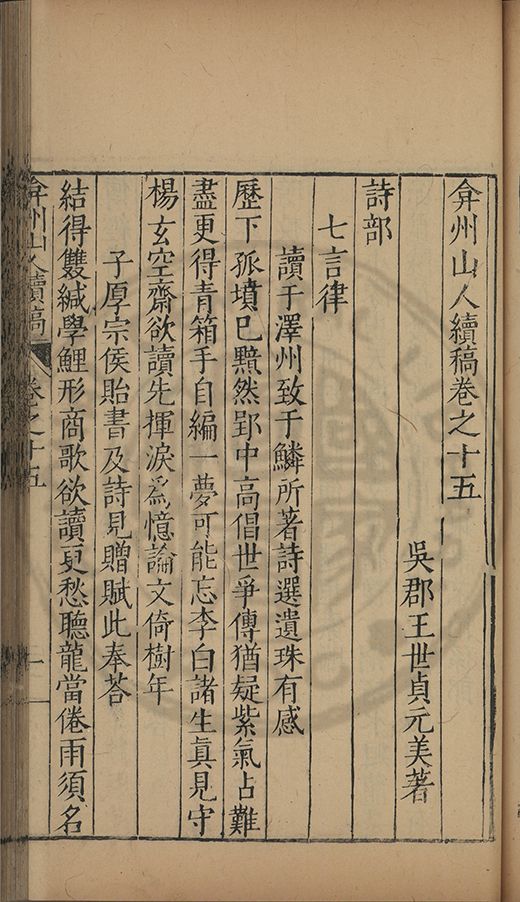 弇州山人續稿卷之十五
吳郡王世貞元美著
詩部
七言律
讀于澤州致于鱗所著詩選遺珠有感
歷下孤墳已黯然郢中高倡世爭傳猶疑紫氣占難
盡更得青箱手自編一夢可能忘李白諸生真見守
楊玄空齋欲讀先揮淚爲憶論文倚樹年
子厚宗侯貽書及詩見贈賦此奉荅
結得雙緘學鯉形商歌欲讀更愁聽龍當倦雨須名
弇州山人續稿
卷之十五
一